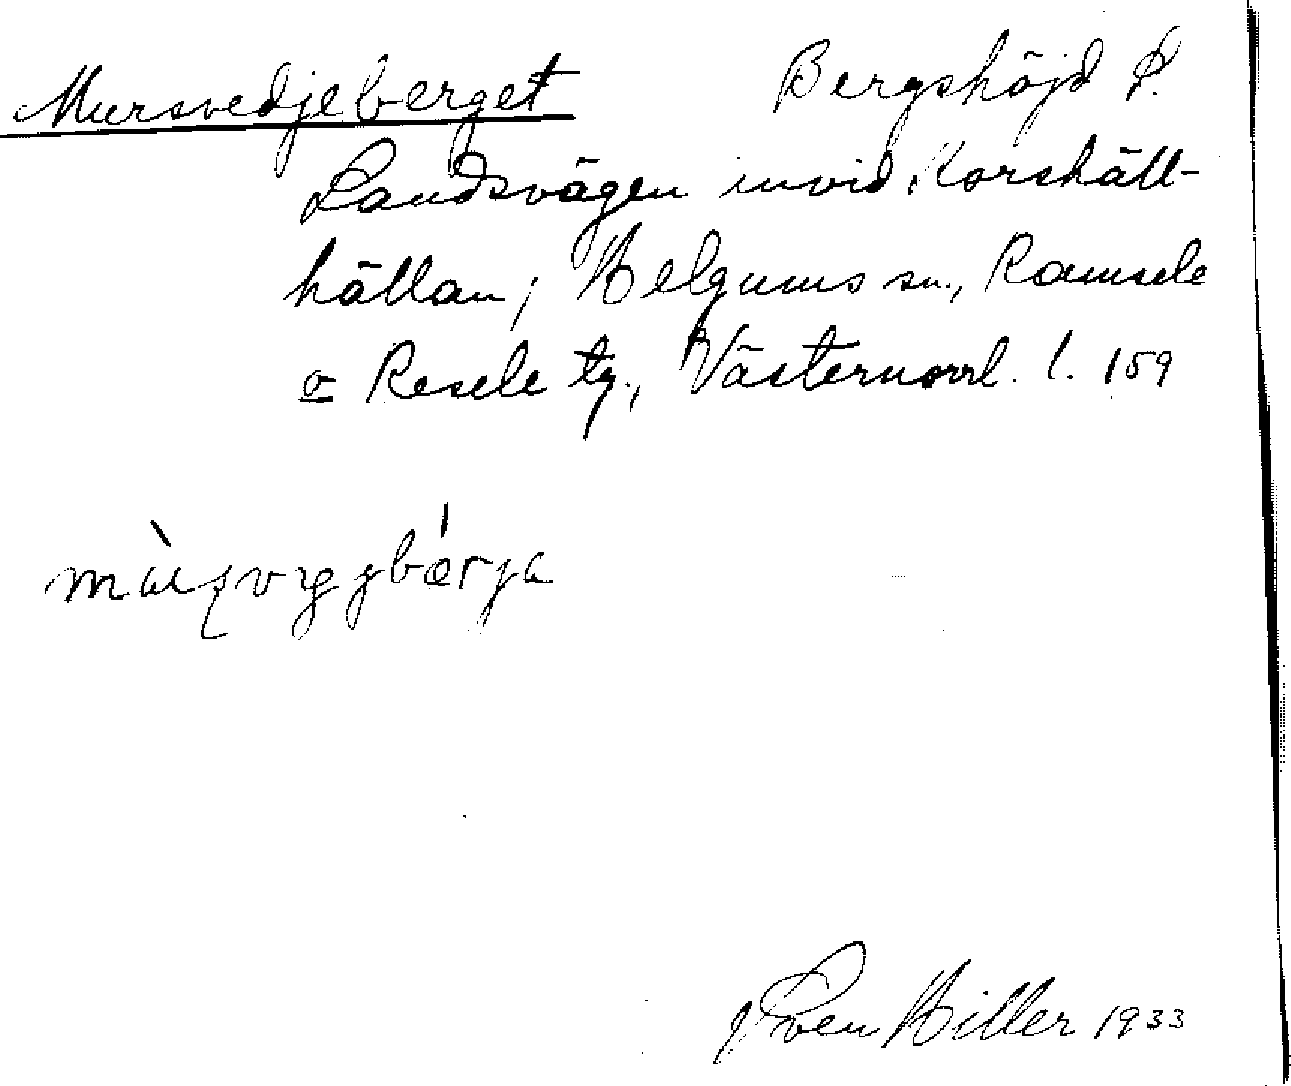 Mursvedjeberget Bergshöjd S.
Landsvägen invid Korshäll-
hällan, Helgums sn., Ramsele
o Resele tg., Västernorrl. l. 159
Sven Hiller 1933